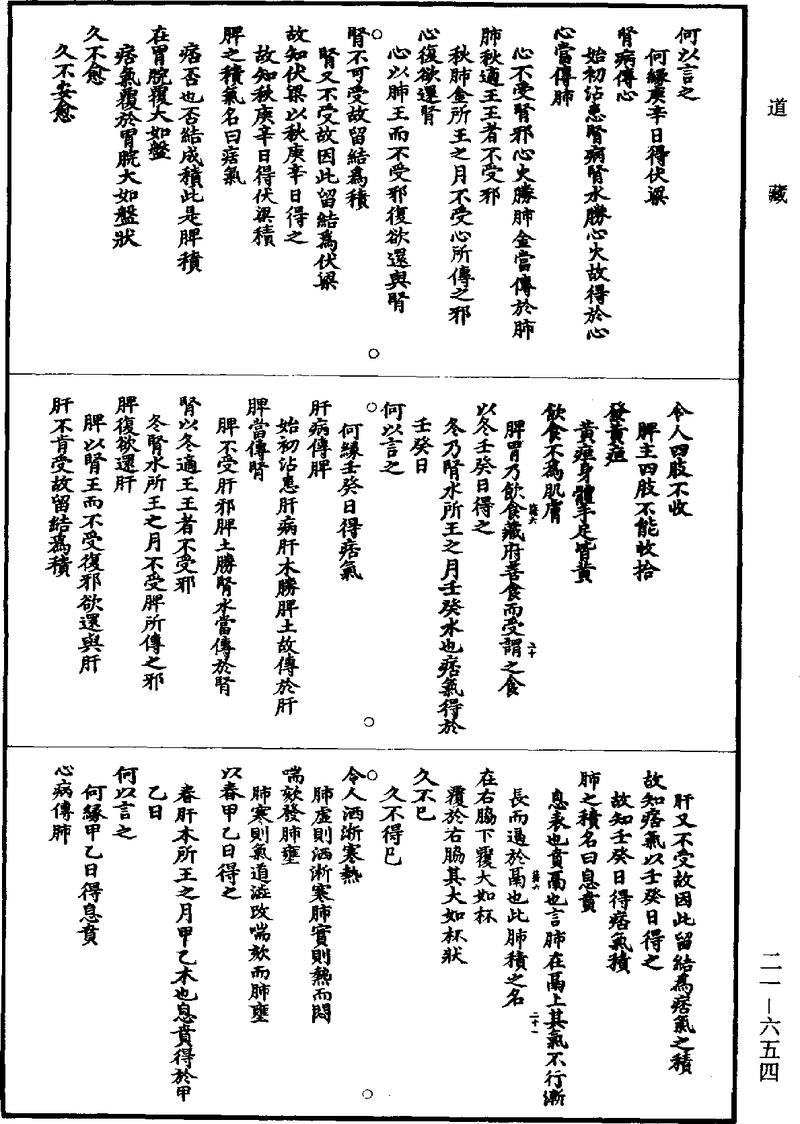 道藏
何以言之
何緣庚辛日得伏梁
腎病傳心
始初沾患腎病腎水勝心火故得於心
心當傳肺
心不受腎邪心火勝肺金當傳於肺
肺秋適王王者不受邪
秋肺金所王之月不受心所傳之邪
心復欲還腎
心以肺王而不受邪復欲還與腎
腎不可受故留結為積
腎又不受故因此留結為伏梁
故知伏梁以秋庚辛日得之
故知秋庚辛日得伏梁積
脾之積氣名曰痞氣
痞否也否結成積此是脾積
在胃脘覆大如盤
痞氣覆於胃脘大如盤狀
久不愈
久不安愈
令人四肢不收
脾主四肢不能收拾
發黃疸
黃疸身體手足皆黃
飲食不為肌膚
脾胃乃飲食藏府善食而受謂之食
以冬壬癸日得之
冬乃腎水所王之月壬癸水也痞氣得於
壬癸日
何以言之
何緣壬癸日得痞氣
肝病傳脾
始初沾患肝病肝木勝脾土故傳於肝
脾當傳腎
脾不受肝邪脾土勝腎水當傳於腎
腎以冬適王王者不受邪
冬腎水所王之月不受脾所傳之邪
脾復欲還肝
脾以腎王而不受復邪欲還與肝
肝不肯受故留結為積
肝又不受故因此留結為痞氣之積
故知痞氣以壬癸日得之
故知壬癸日得痞氣積
肺之積名曰息賁
息表也賁鬲也言肺在鬲上其氣不行漸
長而過於鬲也此肺積之名
在右脇下覆大如杯
覆於右脇其大如杯狀
久不已
久不得已
令人洒淅寒熱
肺虛則洒淅寒肺實則熱而悶
喘欬發肺壅
肺寒則氣道澁改喘欬而肺壅
以春甲乙日得之
春肝木所王之月甲乙木也息賁得於甲
乙日
何以言之
何緣甲乙日得息賁
心病傳肺
二一—六五四